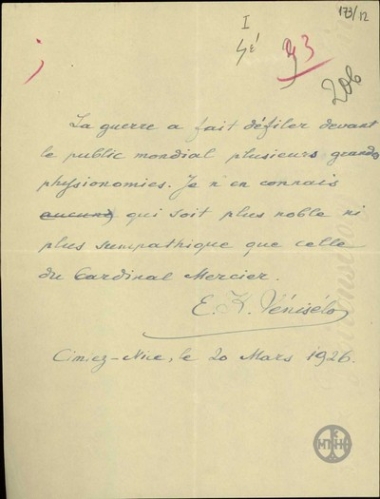 173/12
I
93
206
La guerre a fait défiler devant
le public mondial plusieurs grandes
physionomies. Je n'en connais
aucune qui soit plus noble ni
plus sympathique que celle
du Cardinal Mercier.
E. K. Vénisélos
Cimiez-Nice, le 20 Mars 1926.